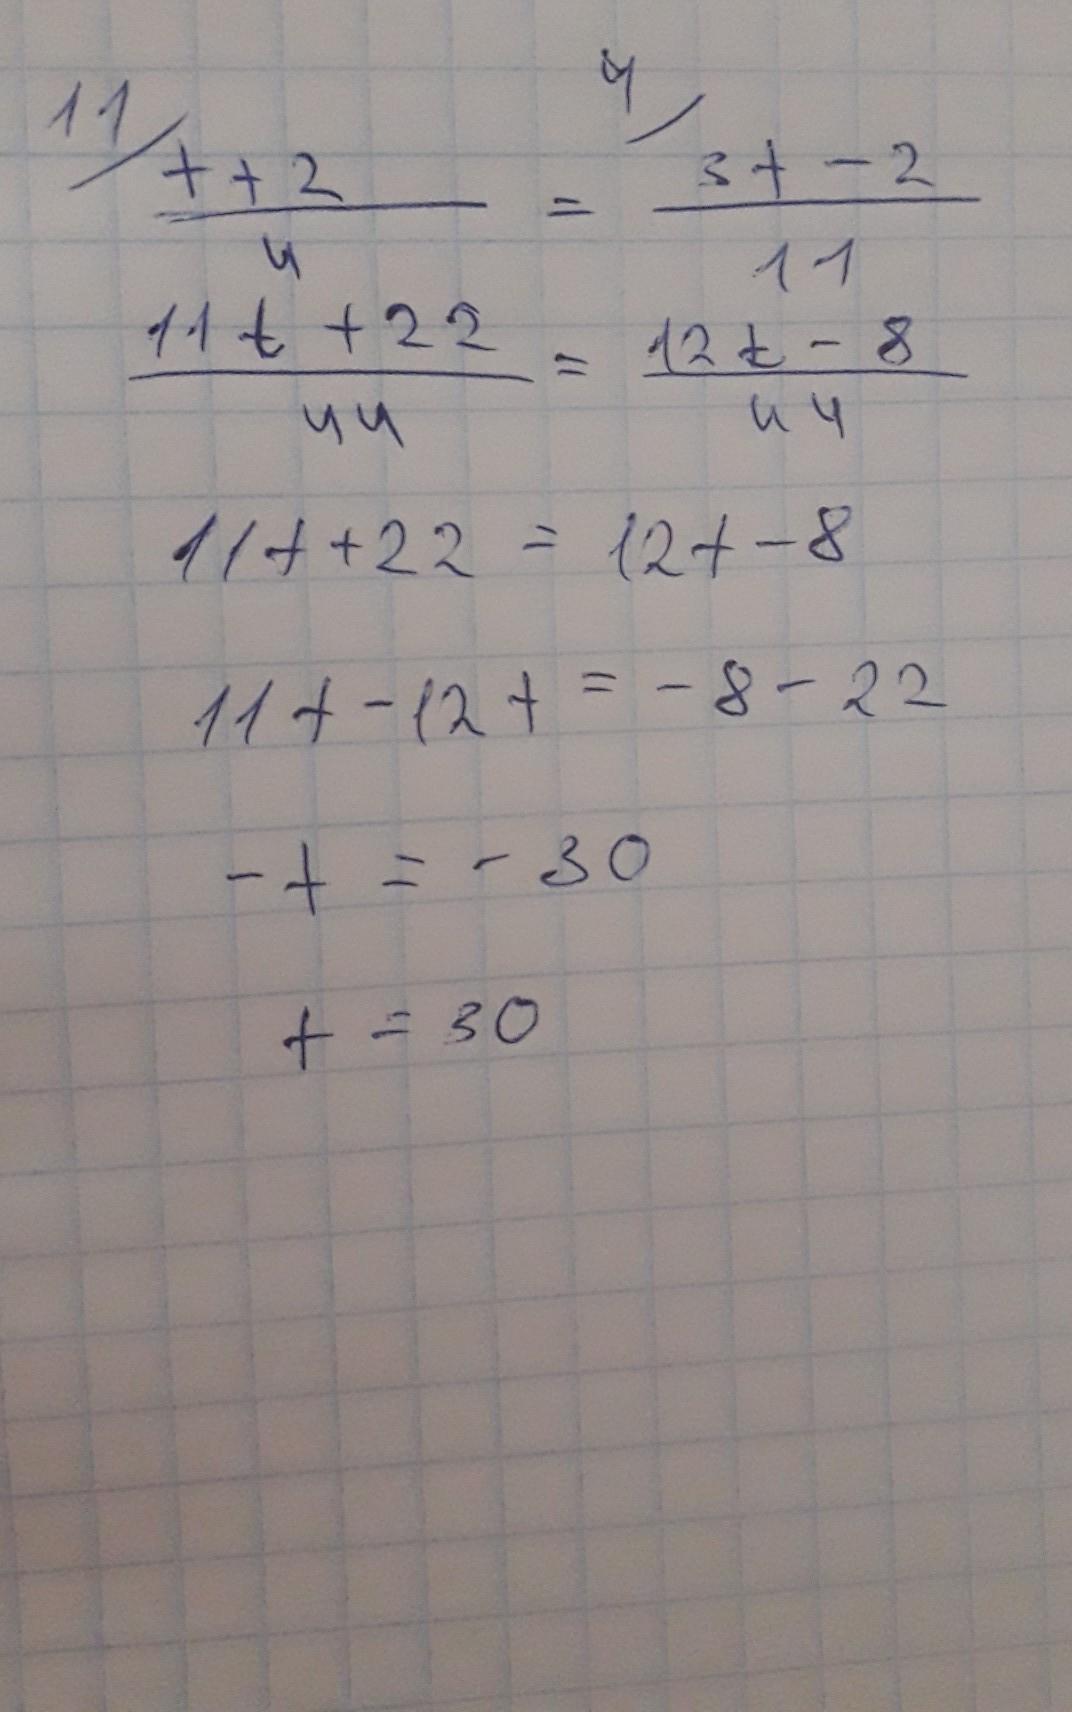 11/ t + 2 / 4 = 4/ 3t - 2 / 11
11t + 22 / 44 = 12t - 8 / 44
11t + 22 = 12t - 8
11t - 12t = -8 - 22
-t = -30
t = 30